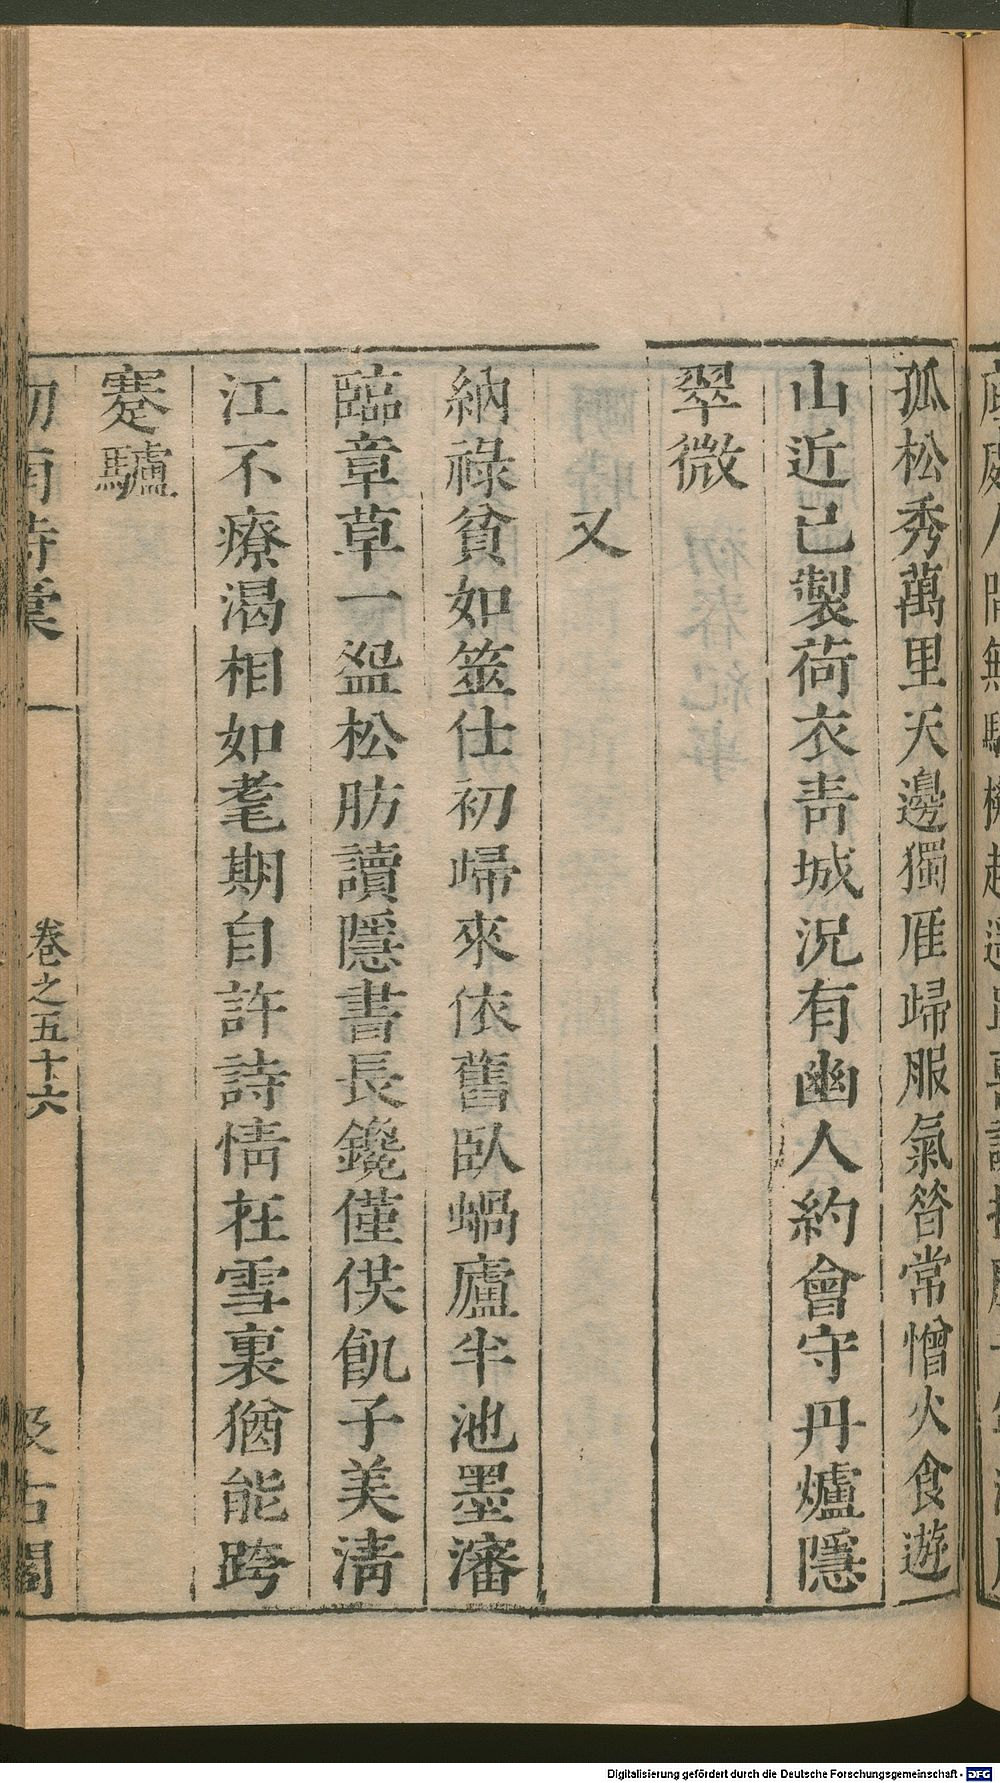 孤松秀萬里天邊獨雁歸服氣㸔常憎火食遊
山近已製荷衣青城況有幽人約會守丹爐隱
翠微
又
納祿貧如筮仕初歸來依舊臥蝸廬半池墨瀋
臨章草一盌松肪讀隱書長鑱僅供飢子美淸
江不療渴相如耄期自許詩情在雪裏猶能跨
蹇驢
卷之五十六
汲古閣
Digitalisierung gefördert durch die Deutsche Forschungsgemeinschaft - DFG